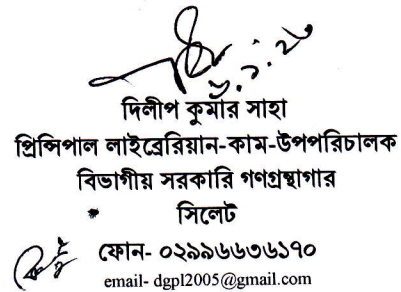 দিলীপ কুমার সাহা
প্রিন্সিপাল লাইব্রেরিয়ান-কাম-উপপরিচালক
বিভাগীয় সরকারি গণগ্রন্থাগার
সিলেট
ফোন- ০২৯৯৬৬৩৬১৭০
email- dgpl2005@gmail.com